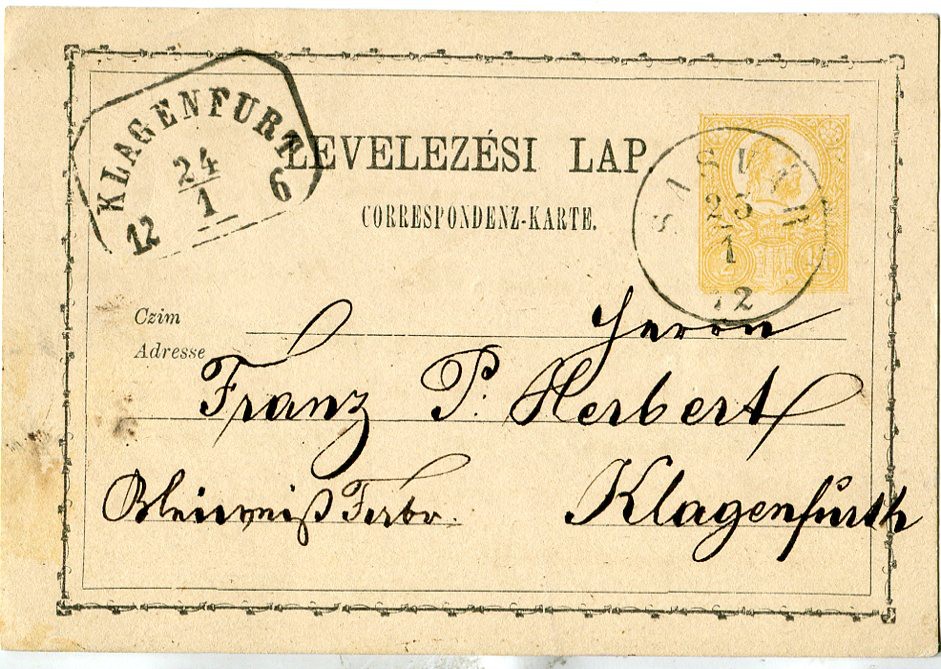 KLAGENFURT
24
1
12 6
LEVELEZÉSI LAP
CORRESPONDENZ-KARTE.
SASVÁR
23
1
72
Czim
Adresse
Herrn
Franz P. Herbert
Bleiweiß Fabr. Klagenfurth